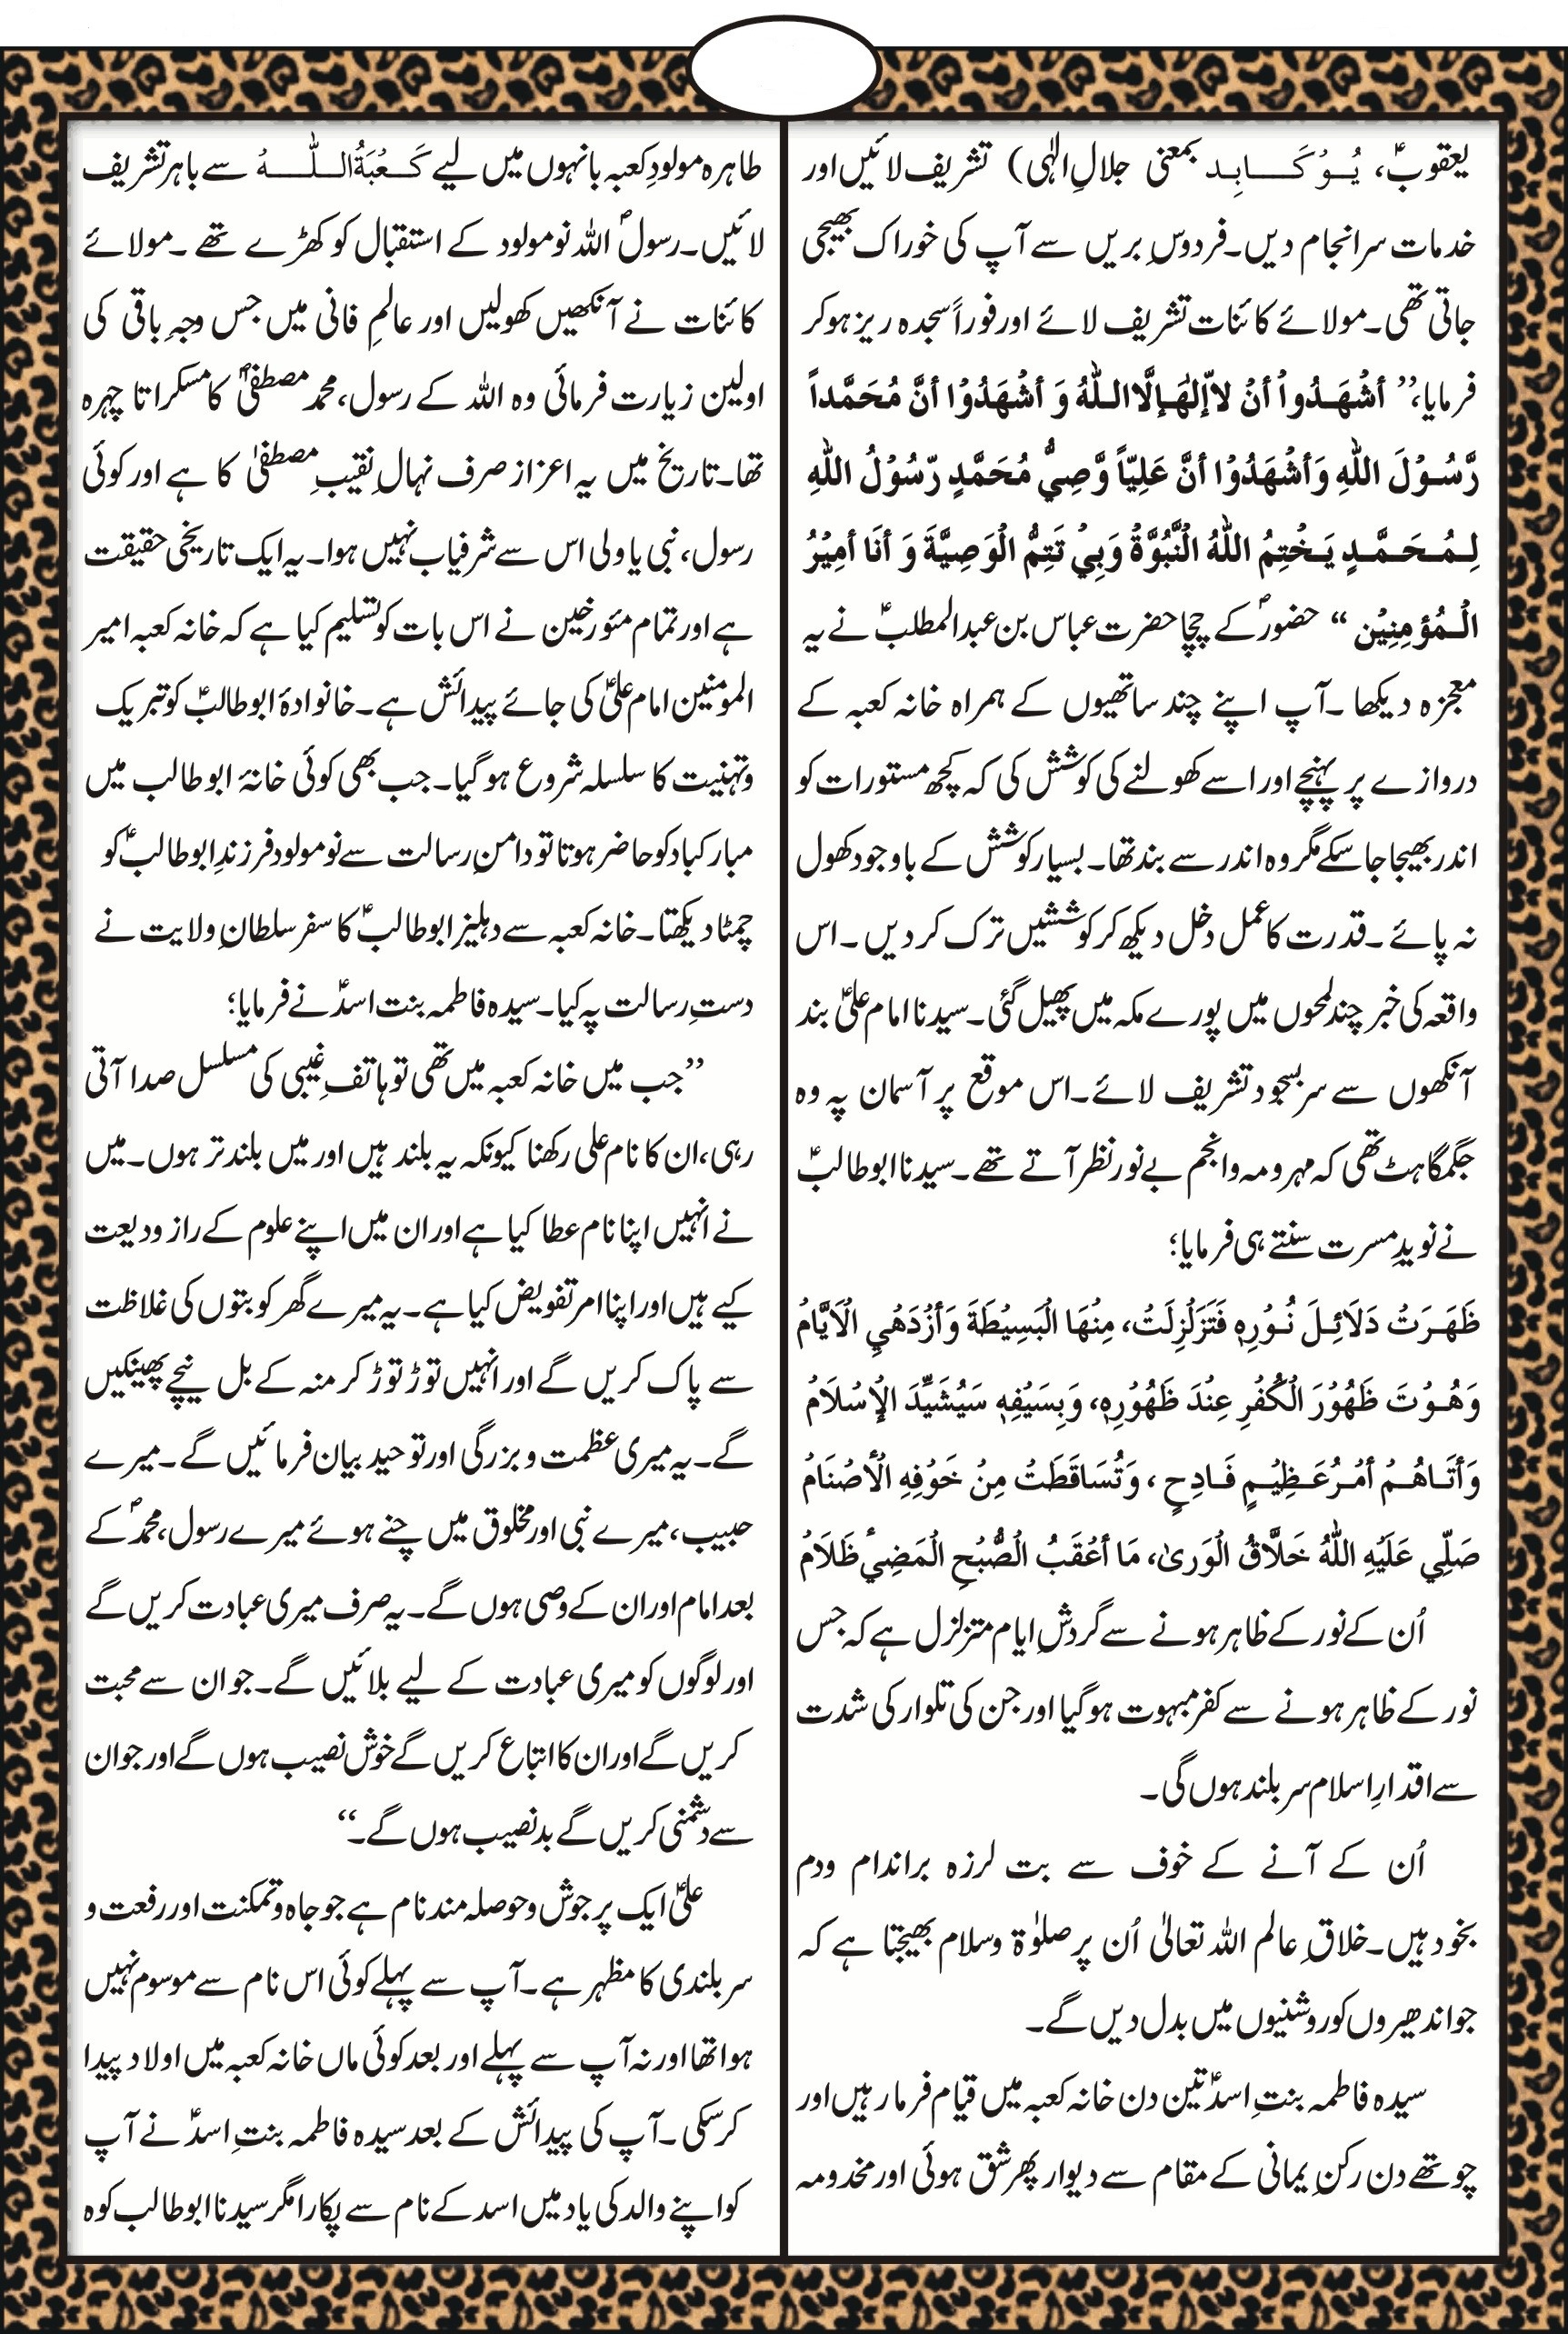 یعقوبؑ، یُوْکَابِد بمعنی جلالِ الٰہی) تشریف لائیں اور
خدمات سر انجام دیں۔ فردوسِ بریں سے آپ کی خوراک بھیجی
جاتی تھی۔ مولائے کائنات تشریف لائے اور فوراً سجدہ ریز ہو کر
فرمایا، ’’أشْھَدُواْ أنْ لاّ إلٰہَ إلَّا اللّٰہُ وَ أشْھَدُوْا أنَّ مُحَمَّداً
رَّسُوْلَ اللّٰہِ وَأشْھَدُوْا أنَّ عَلِیّاً وَّصِيُّ مُحَمَّدٍ رّسُوْلُ اللّٰہِ
لِمُحَمَّدٍ یَخْتِمُ اللّٰہُ الْنَّبُوَّۃُ وَبِيْ تَتِمُّ الْوَصِیَّۃَ وَ أنَا أمِیْرُ
الْمُؤمِنِیْن‘‘ حضورؐ کے چچا حضرت عباس بن عبدالمطلبؑ نے یہ
معجزہ دیکھا ۔ آپ اپنے چند ساتھیوں کے ہمراہ خانہ کعبہ کے
دروازے پر پہنچے اور اسے کھولنے کی کوشش کی کہ کچھ مستورات کو
اندر بھیجا جا سکے مگر وہ اندر سے بند تھا۔ بسیار کوشش کے باوجود کھول
نہ پائے ۔ قدرت کا عمل دخل دیکھ کر کوششیں ترک کر دیں ۔ اس
واقعہ کی خبر چند لمحوں میں پورے مکہ میں پھیل گئی۔ سیدنا امام علیؑ بند
آنکھوں سے سر بسجود تشریف لائے۔ اس موقع پر آسمان پہ وہ
جگمگاہٹ تھی کہ مہر و مہ و انجم بے نور نظر آتے تھے ۔ سیدنا ابو طالبؑ
نے نویدِ مسرت سنتے ہی فرمایا؛
ظَھَرَتْ دَلَائِلَ نُوْرِہٖ فَتَزَلْزِلَتْ، مِنْھَا الْبَسِیْطَۃَ وَأزْدَھٰيِ الْاَیَّامُ
وَھُوْتَ ظَھُوْرَ الْکُفْرِ عِنْدَ ظَھُوْرِہٖ، وَبِسَیْفِہٖ سَیُشَیِّدَ الْإسْلَامُ
وَأتَاھُمْ أمْرُ عَظِیْمٍ فَادِحٍ ، وَتُسَاقَطَتْ مِنْ خَوْفِہِ الْأصْنَامُ
صَلّٰيِ عَلَیْہِ اللّٰہُ خَلَّاقُ الْوَریٰ، مَا أعْقَبُ الْصُّبْحِ الْمَضِيءِ ظَلَامُ
اُن کے نور کے ظاہر ہونے سے گردشِ ایام متزلزل ہے کہ جس
نور کے ظاہر ہونے سے کفر مبہوت ہو گیا اور جن کی تلوار کی شدت
سے اقدارِ اسلام سر بلند ہوں گی۔
اُن کے آنے کے خوف سے بت لرزہ براندام و دم
بخود ہیں۔ خلاقِ عالم اللہ تعالیٰ اُن پر صلوٰۃ و سلام بھیجتا ہے کہ
جو اندھیروں کو روشنیوں میں بدل دیں گے۔
سیدہ فاطمہ بنتِ اسدؑ تین دن خانہ کعبہ میں قیام فرما رہیں اور
چوتھے دن رکنِ یمانی کے مقام سے دیوار پھر شق ہوئی اور مخدومہ
طاہرہ مولودِ کعبہ بانہوں میں لیے کَعْبَۃُ اللّٰہ سے باہر تشریف
لائیں۔ رسولؐ اللہ نومولود کے استقبال کو کھڑے تھے ۔ مولائے
کائنات نے آنکھیں کھولیں اور عالمِ فانی میں جس وجہِ باقی کی
اولین زیارت فرمائی وہ اللہ کے رسول، محمد مصطفیٰؐ کا مسکراتا چہرہ
تھا۔ تاریخ میں یہ اعزاز صرف نہالِ نقیبِ مصطفیٰ کا ہے اور کوئی
رسول، نبی یا ولی اس سے شرفیاب نہیں ہوا۔ یہ ایک تاریخی حقیقت
ہے اور تمام مئورخین نے اس بات کو تسلیم کیا ہے کہ خانہ کعبہ امیر
المومنین امام علیؑ کی جائے پیدائش ہے۔ خانوادۂ ابو طالبؑ کو تبریک
و تہنیت کا سلسلہ شروع ہو گیا۔ جب بھی کوئی خانۂ ابو طالب میں
مبارکباد کو حاضر ہوتا تو دامنِ رسالت سے نومولود فرزندِ ابو طالبؑ کو
چمٹا دیکھتا۔ خانہ کعبہ سے دہلیز ابو طالبؑ کا سفر سلطانِ ولایت نے
دستِ رسالت پہ کیا۔ سیدہ فاطمہ بنت اسدؑ نے فرمایا؛
’’جب میں خانہ کعبہ میں تھی تو ہاتفِ غیبی کی مسلسل صدا آتی
رہی، ان کا نام علی رکھنا کیونکہ یہ بلند ہیں اور میں بلند تر ہوں۔ میں
نے انہیں اپنا نام عطا کیا ہے اور ان میں اپنے علوم کے راز ودیعت
کیے ہیں اور اپنا امر تفویض کیا ہے۔ یہ میرے گھر کو بتوں کی غلاظت
سے پاک کریں گے اور انہیں توڑ توڑ کر منہ کے بل نیچے پھینکیں
گے۔ یہ میری عظمت و بزرگی اور توحید بیان فرمائیں گے۔ میرے
حبیب، میرے نبی اور مخلوق میں چنے ہوئے میرے رسول، محمدؐ کے
بعد امام اور ان کے وصی ہوں گے۔ یہ صرف میری عبادت کریں گے
اور لوگوں کو میری عبادت کے لیے بلائیں گے۔ جو ان سے محبت
کریں گے اور ان کا اتباع کریں گے خوش نصیب ہوں گے اور جو ان
سے دشمنی کریں گے بد نصیب ہوں گے۔‘‘
علیؑ ایک پر جوش و حوصلہ مند نام ہے جو جاہ و تمکنت اور رفعت و
سربلندی کا مظہر ہے۔ آپ سے پہلے کوئی اس نام سے موسوم نہیں
ہوا تھا اور نہ آپ سے پہلے اور بعد کوئی ماں خانہ کعبہ میں اولاد پیدا
کر سکی ۔ آپ کی پیدائش کے بعد سیدہ فاطمہ بنتِ اسدؑ نے آپ
کو اپنے والد کی یاد میں اسد کے نام سے پکارا مگر سیدنا ابو طالب کوہ